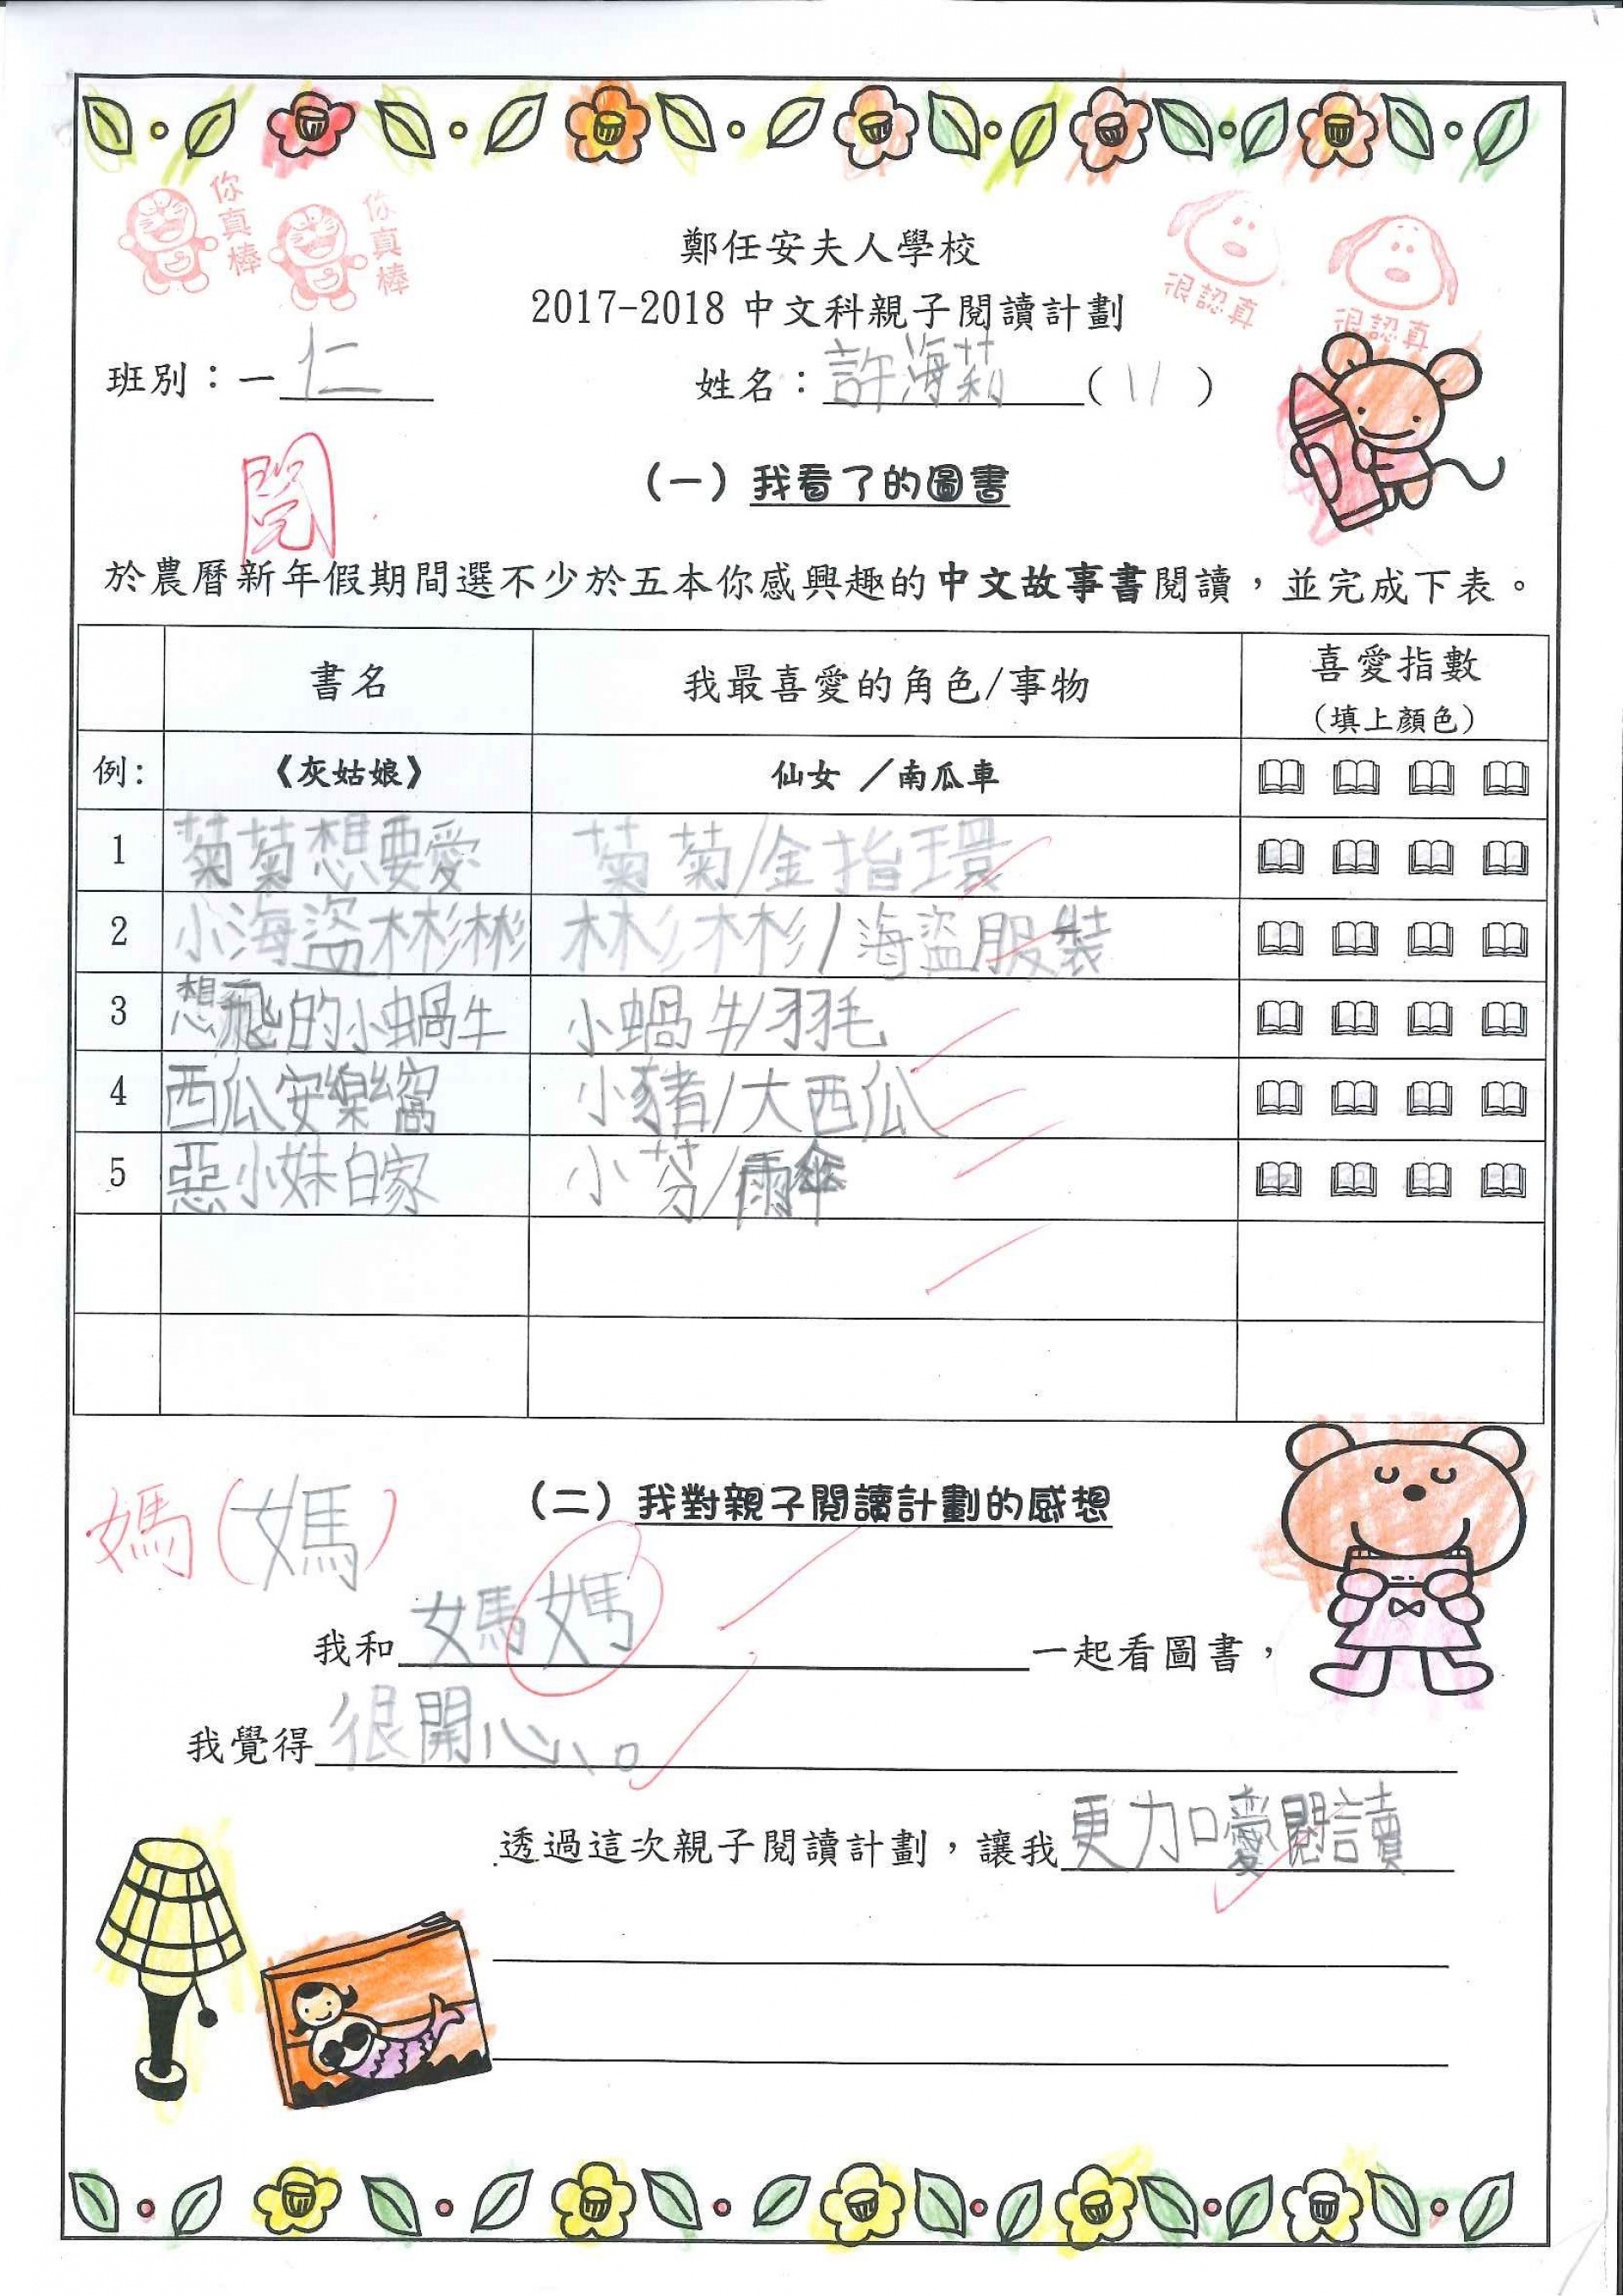 你真棒 你真棒 很認真 很認真
鄭任安夫人學校
2017-2018 中文科親子閱讀計劃
班別：一 仁 姓名：許海莉 ( 11 )
閱
（一）我看了的圖書
於農曆新年假期間選不少於五本你感興趣的中文故事書閱讀，並完成下表。
書名 我最喜愛的角色/事物 喜愛指數
（填上顏色）
例： 《灰姑娘》 仙女 ／南瓜車
1 菊菊想要愛 菊菊/金指環
2 小海盜彬彬 彬彬/海盜服裝
3 想飛的小蝸牛 小蝸牛/羽毛
4 西瓜安樂窩 小豬/大西瓜
5 惡小妹白家 小芬/雨傘
媽(媽) （二）我對親子閱讀計劃的感想
我和媽媽一起看圖書，
我覺得很開心。
透過這次親子閱讀計劃，讓我更加愛閱讀